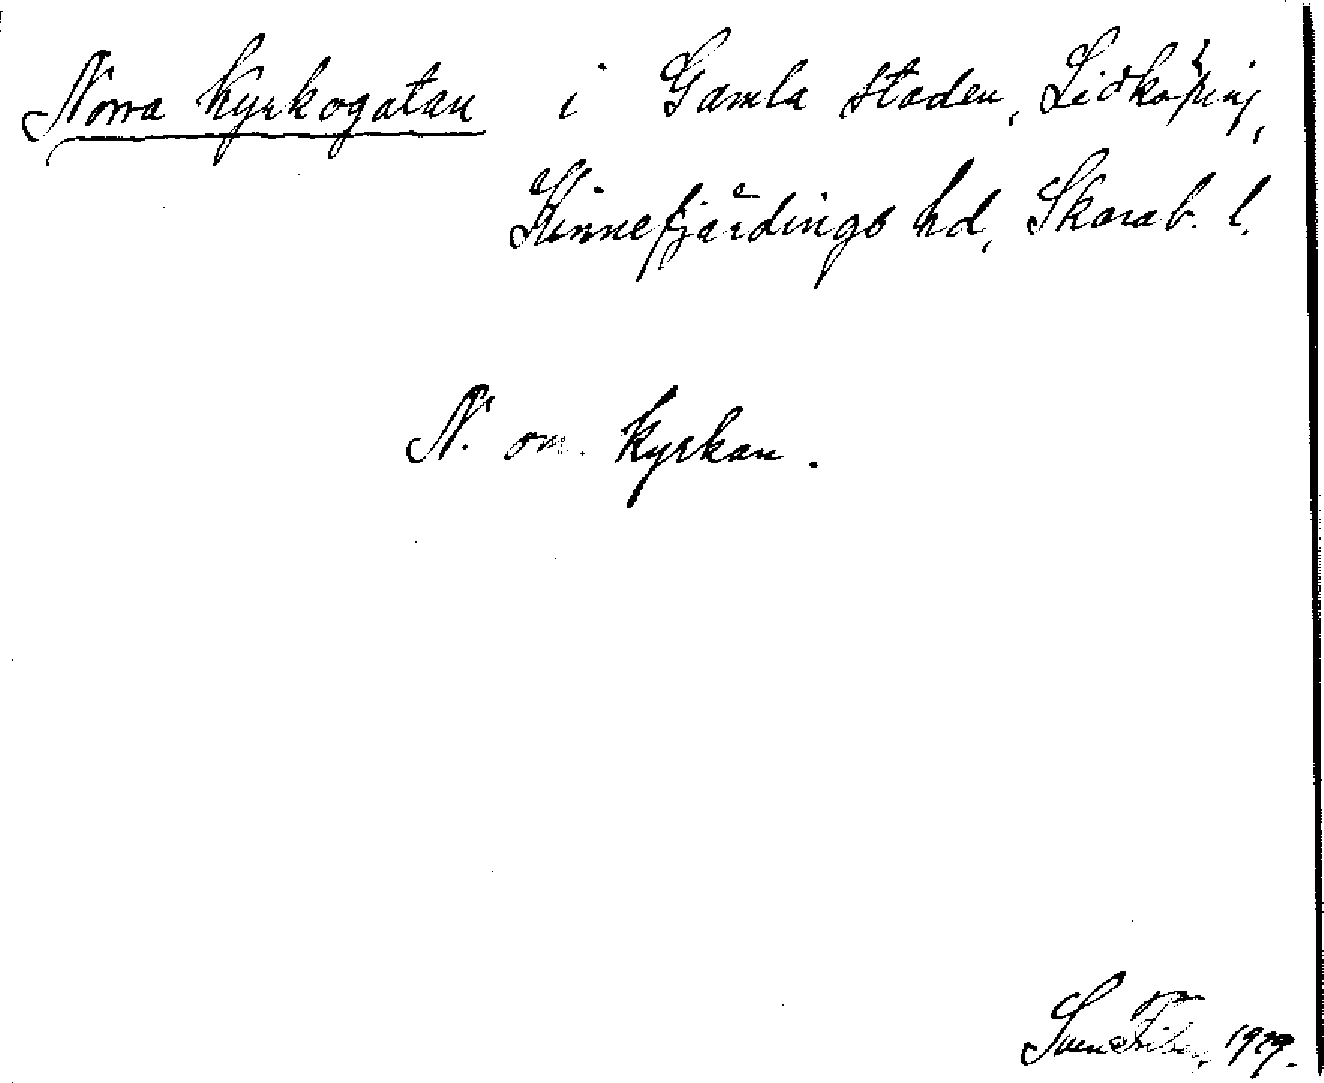 Norra Kyrkogatan i Gamla staden, Lidköping,
Kinnefjärdings hd, Skarab. l.
N. om kyrkan.
Sven